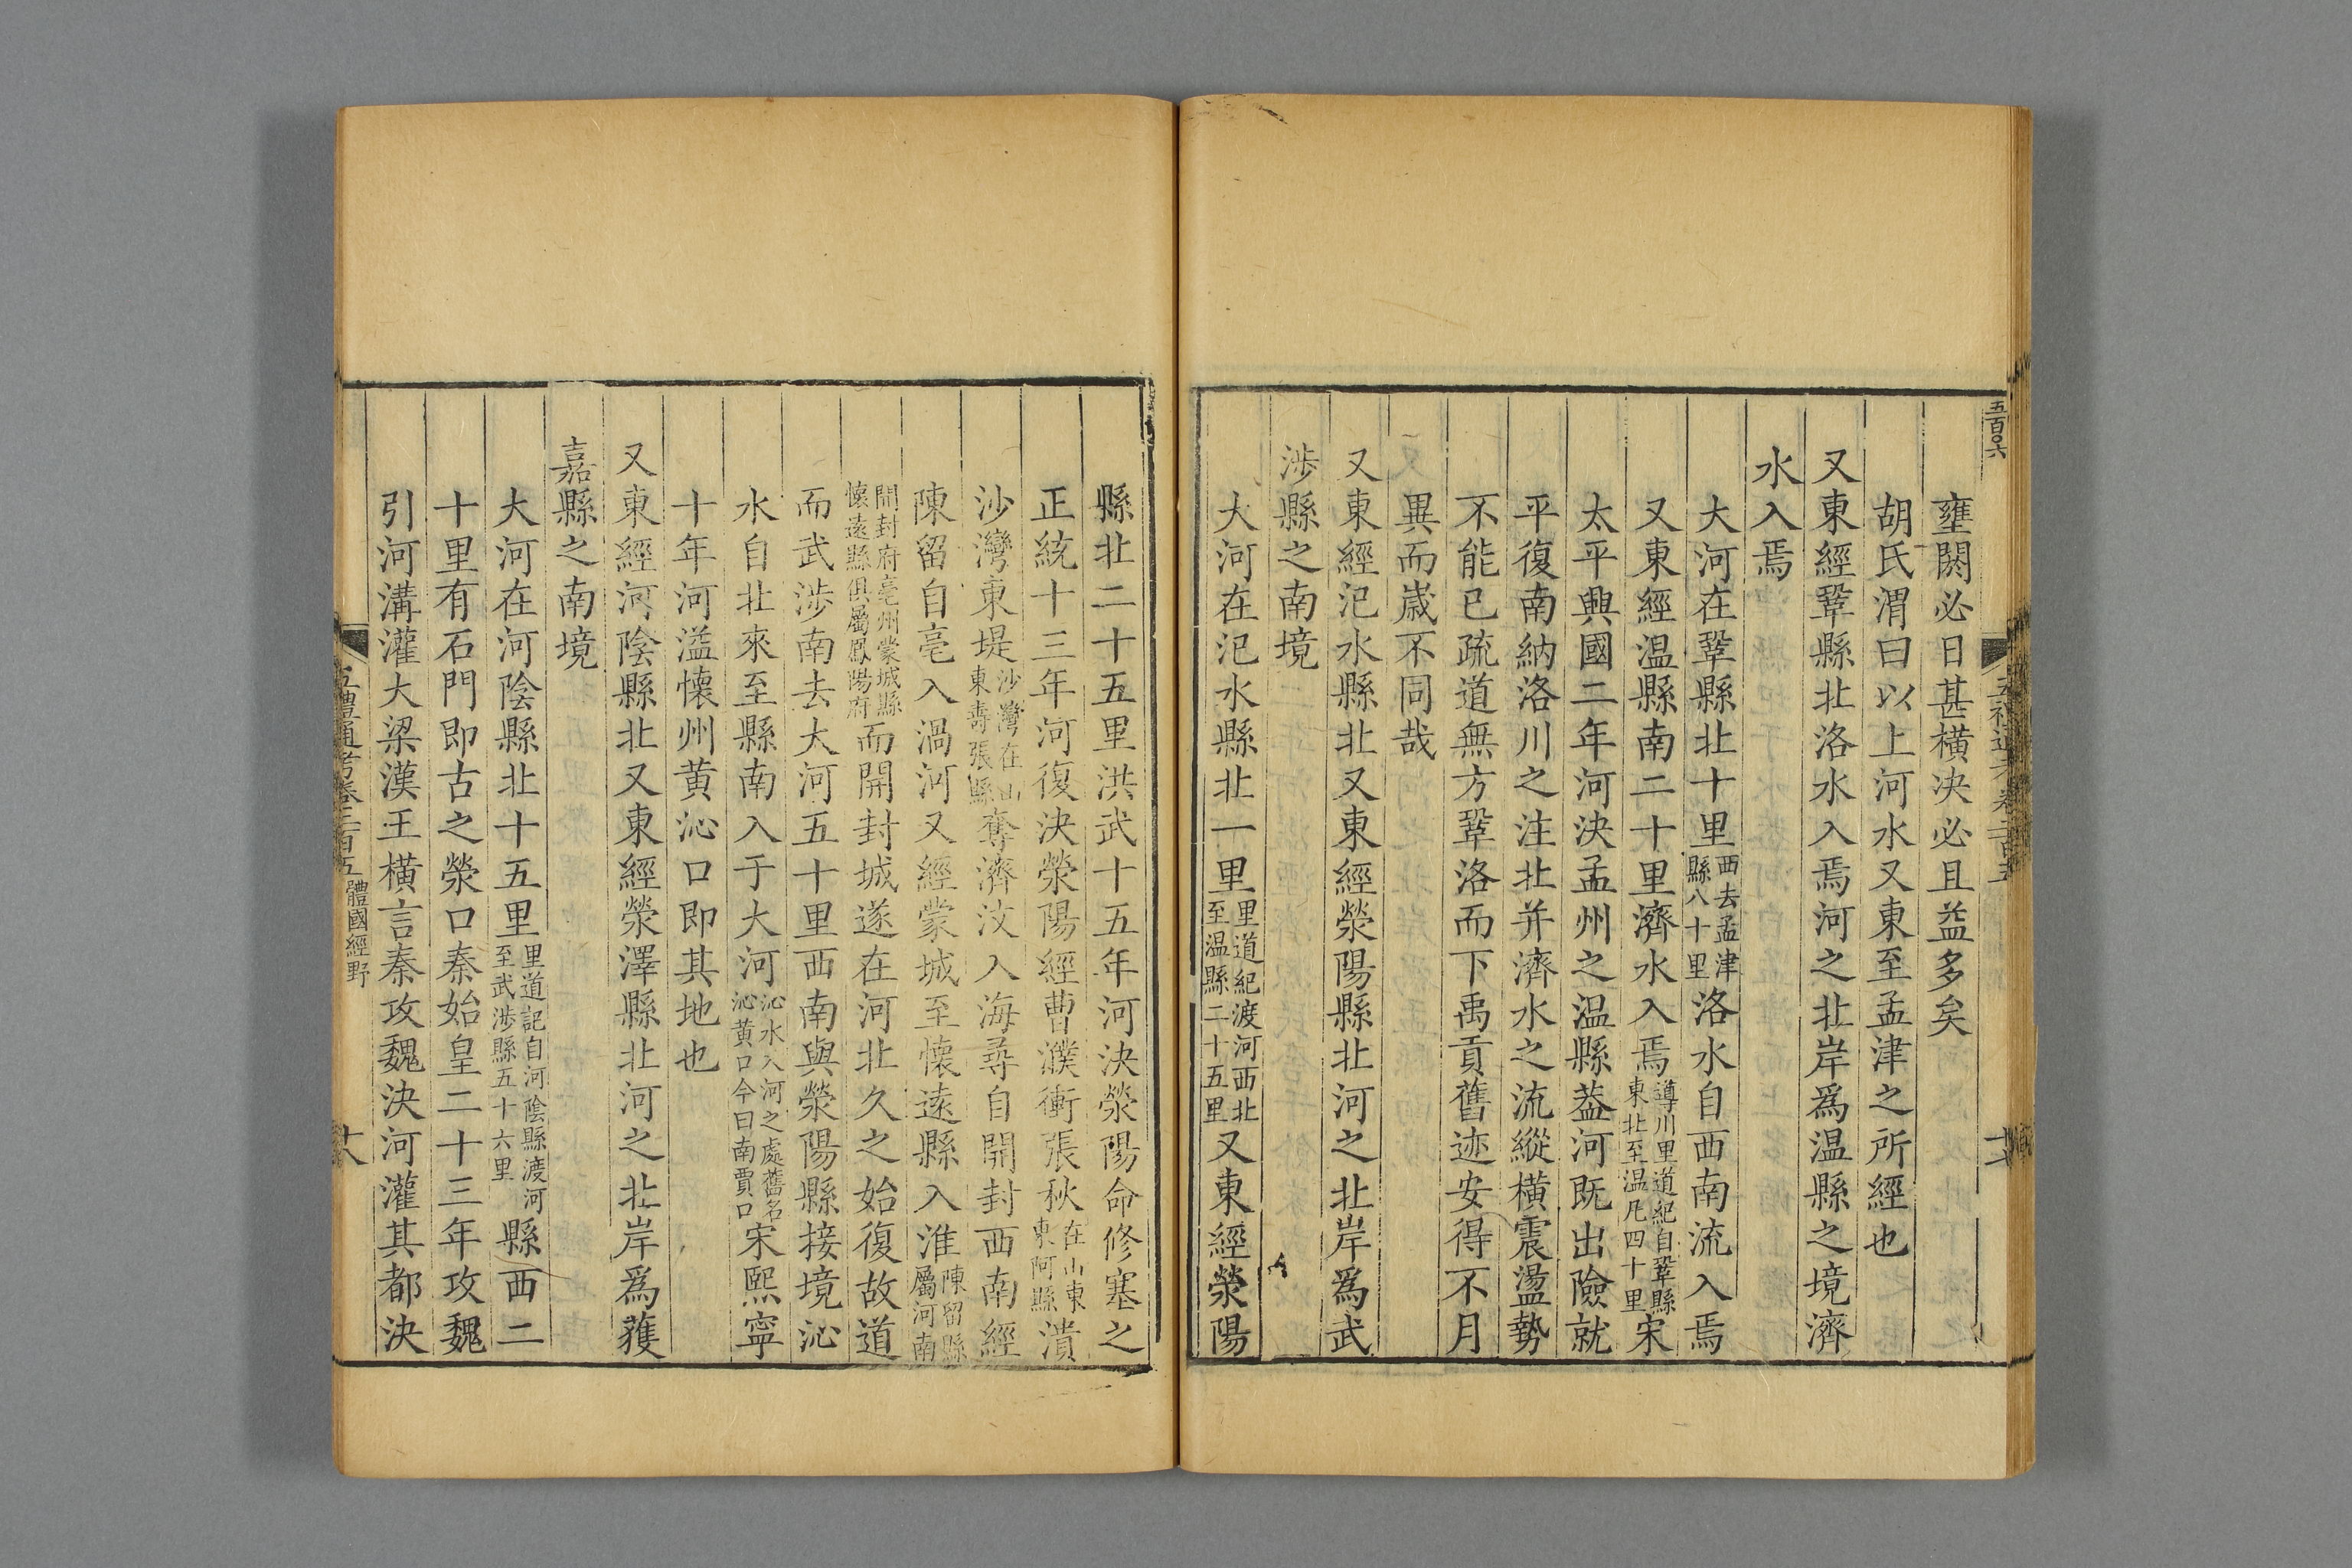 五百〇六
壅閼必日甚橫决必且益多矣
胡氏渭曰以上河水又東至孟津之所經也
又東經鞏縣北洛水入焉河之北岸爲温縣之境濟
水入焉
大河在鞏縣北十里西去孟津縣八十里洛水自西南流入焉
又東經温縣南二十里濟水入焉導川里道紀自鞏縣東北至温凡四十里宋
太平興國二年河決孟州之温縣葢河既出險就
平復南納洛川之注北并濟水之流縱橫震盪勢
不能已疏道無方鞏洛而下禹貢舊迹安得不月
異而嵗不同哉
又東經汜水縣北又東經滎陽縣北河之北岸爲武
涉縣之南境
大河在汜水縣北一里里道紀渡河西北至温縣二十五里又東經滎陽
縣北二十五里洪武十五年河決滎陽命修塞之
正統十三年河復決滎陽經曹濮衝張秋在山東東阿縣潰
沙灣東堤沙灣在山東壽張縣奪濟汶入海尋自開封西南經
陳留自亳入渦河又經蒙城至懷遠縣入淮陳留縣屬河南
開封府亳州蒙城縣懷遠縣俱屬鳳陽府而開封城遂在河北久之始復故道
而武涉南去大河五十里西南與滎陽縣接境沁
水自北來至縣南入于大河沁水入河之處舊名沁黄口今曰南賈口宋熙寧
十年河溢懷州黄沁口即其地也
又東經河陰縣北又東經滎澤縣北河之北岸爲獲
嘉縣之南境
大河在河陰縣北十五里里道記自河陰縣渡河至武涉縣五十六里縣西二
十里有石門即古之滎口秦始皇二十三年攻魏
引河溝灌大梁漢王橫言秦攻魏決河灌其都決
五禮通考卷二百五 體國經野 十八